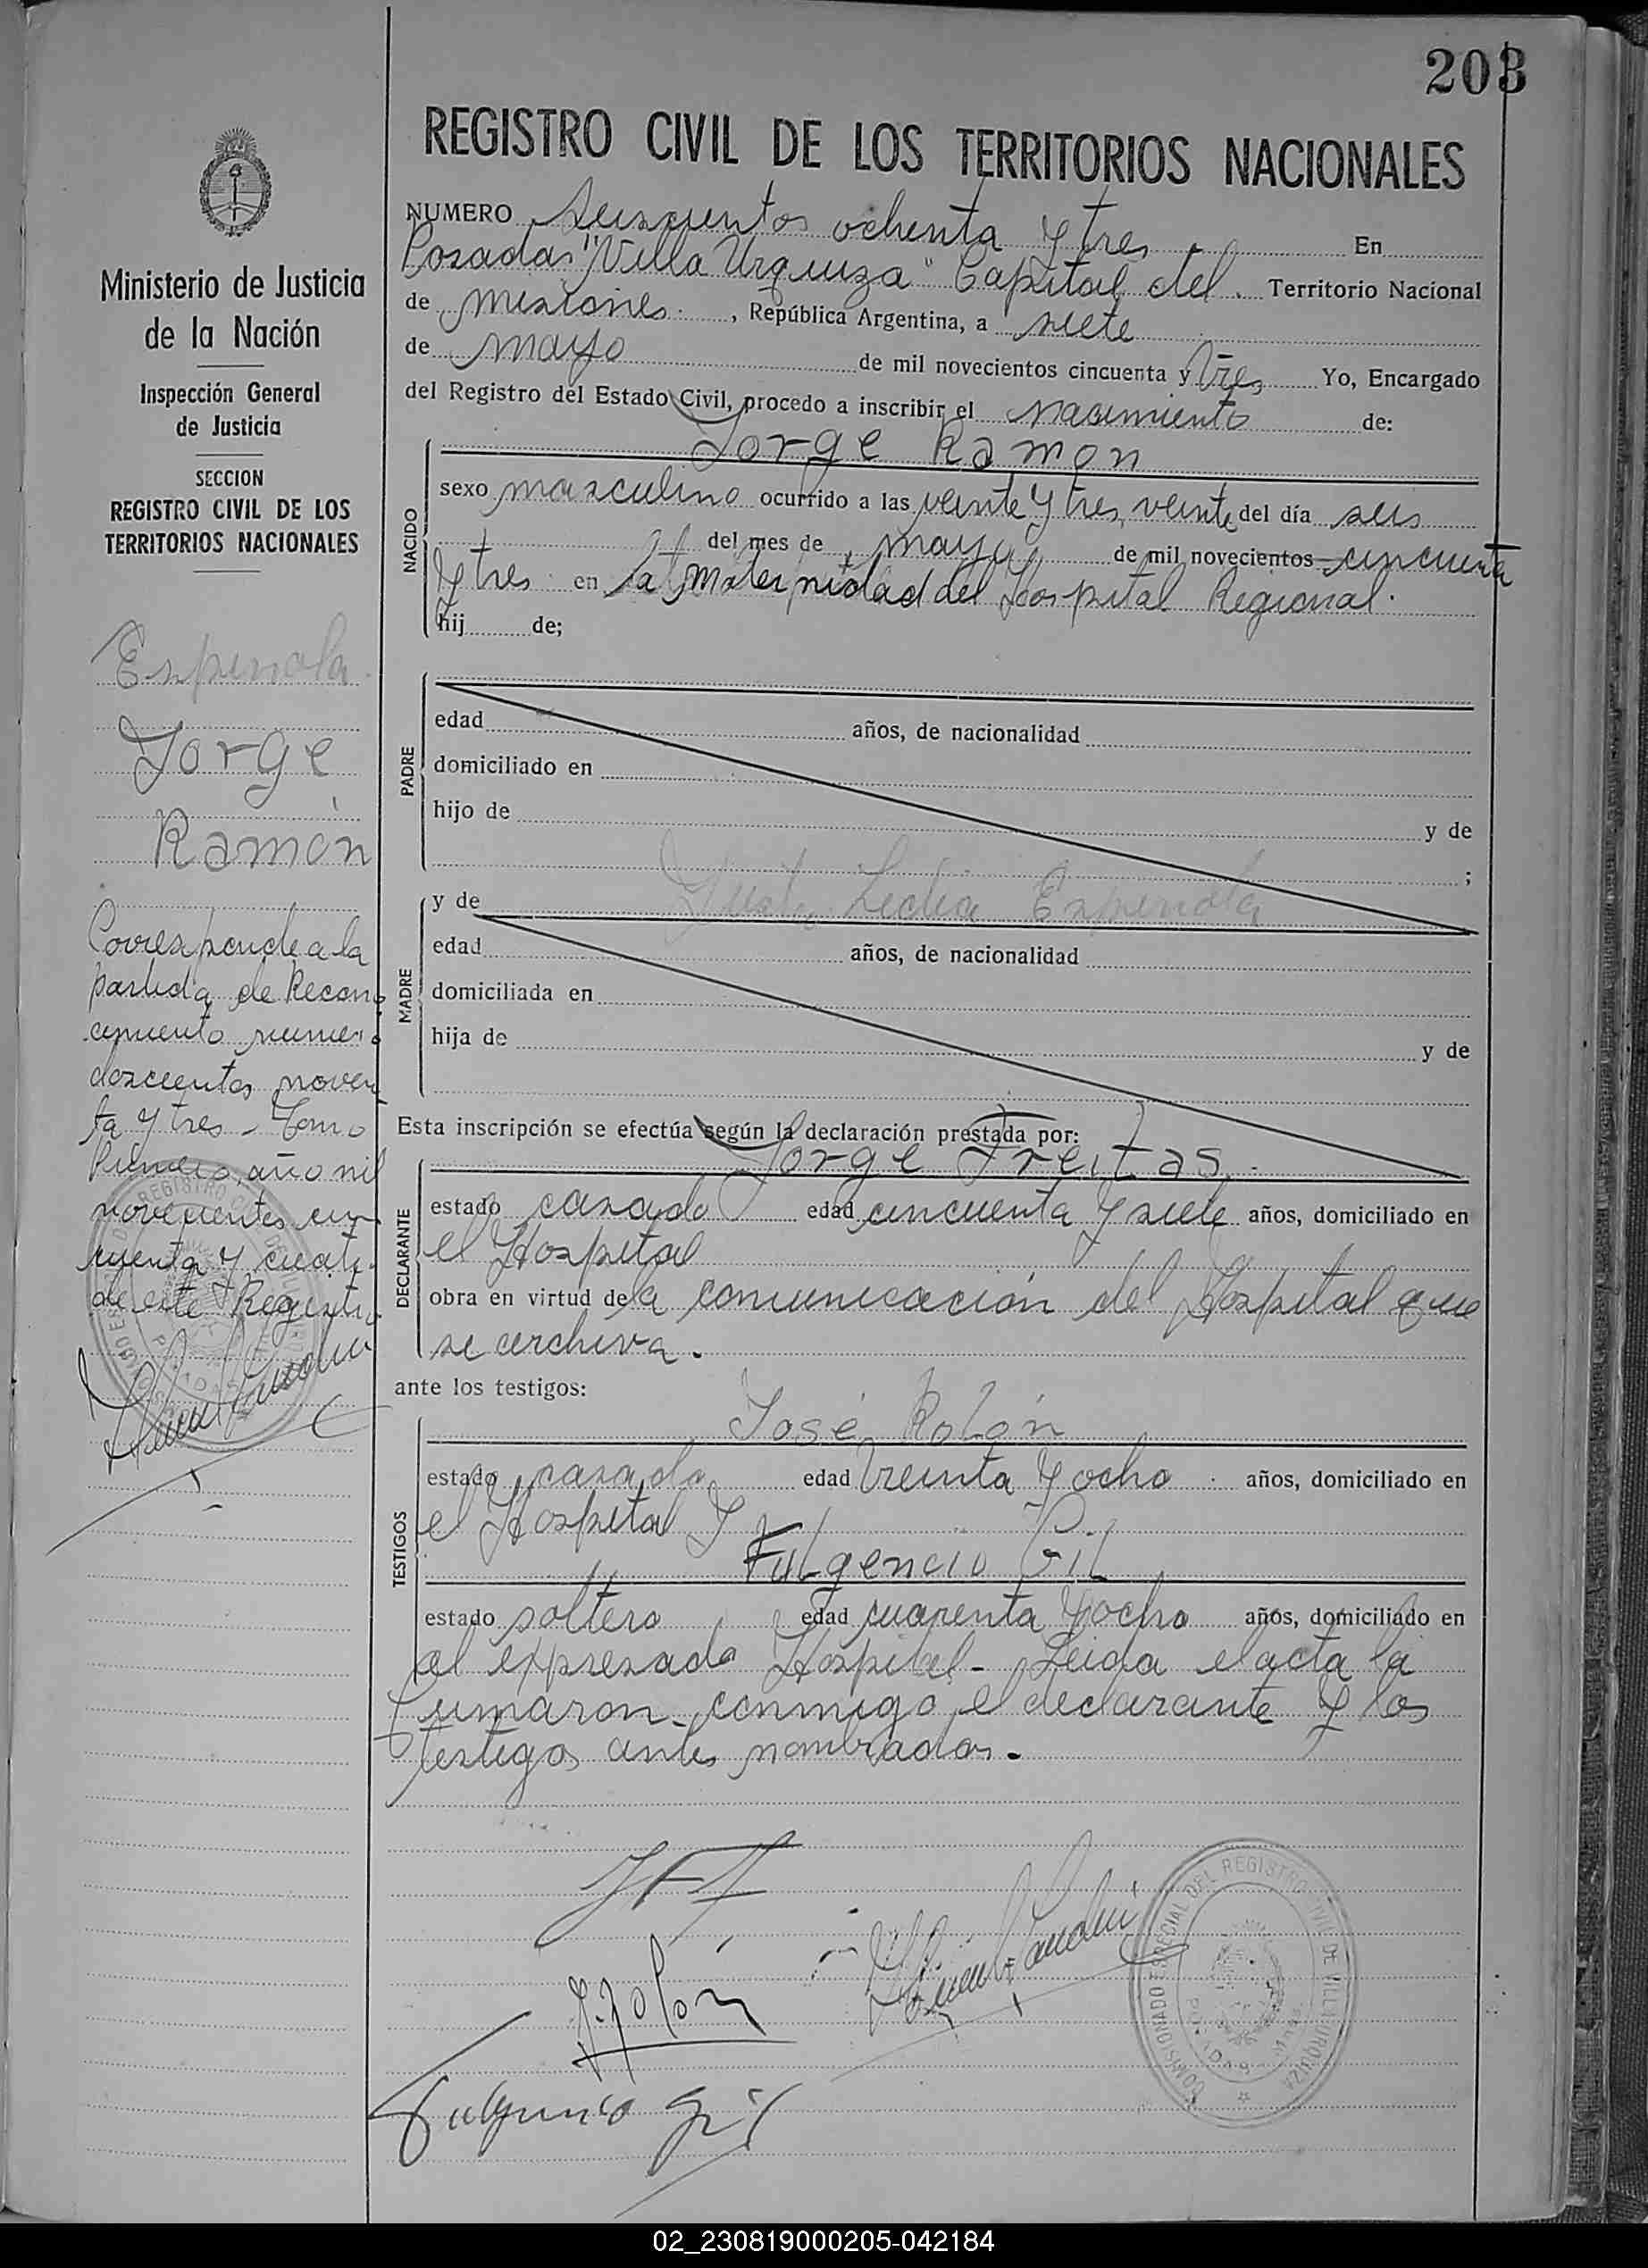 203
REGISTRO CIVIL DE LOS TERRITORIOS NACIONALES
Ministerio de Justicia
de la Nación
Inspección General
de Justicia
SECCION
REGISTRO CIVIL DE LOS
TERRITORIOS NACIONALES
Espinola
Jorge
Ramón
Corresponde a la
partida de Recono
cimiento numero
doscientos noven
ta y tres - Tomo
Primero, año mil
novecientos cin
cuenta y cuatro
de este Registro
NUMERO Seiscientos ochenta y tres. En
Posadas "Villa Urquiza" Capital del. Territorio Nacional
de misiones. , República Argentina, a siete
de mayo de mil novecientos cincuenta y tres Yo, Encargado
del Registro del Estado Civil, procedo a inscribir el nacimiento de:
Jorge Ramon
NACIDO
sexo masculino ocurrido a las veinte y tres, veinte del día seis
del mes de mayo de mil novecientos cincuenta
y tres en la maternidad del Hospital Regional.
hij de;
PADRE
edad años, de nacionalidad
domiciliado en
hijo de y de
;
MADRE
y de Justa Lidia Espinola
edad años, de nacionalidad
domiciliada en
hija de y de
Esta inscripción se efectúa según la declaración prestada por:
Jorge Freitas.
DECLARANTE
estado casado edad cincuenta y siete años, domiciliado en
el Hospital
obra en virtud de la comunicación del Hospital que
se archiva.
ante los testigos:
José Rolón
TESTIGOS
estado casado edad treinta y ocho. años, domiciliado en
el Hospital y
Fulgencio Gil
estado soltero edad cuarenta y ocho años, domiciliado en
el expresado Hospital- Leida el acta la
firmaron conmigo el declarante y los
testigos antes nombrados.
J. Rolón
Fulgencio Gil
COMISIONADO ESPECIAL DEL REGISTRO CIVIL DE VILLA URQUIZA
POSADAS
02_230819000205-042184